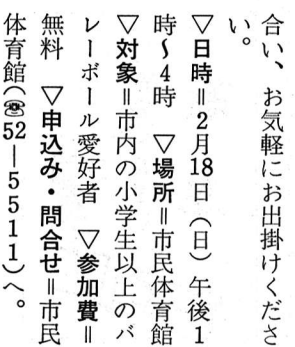 合い、お気軽にお出掛けくださ
い。
▽日時＝2月18日（日）午後1
時〜4時　▽場所＝市民体育館
▽対象＝市内の小学生以上のバ
レーボール愛好者　▽参加費＝
無料　▽申込み・問合せ＝市民
体育館（☎52―5511）へ。